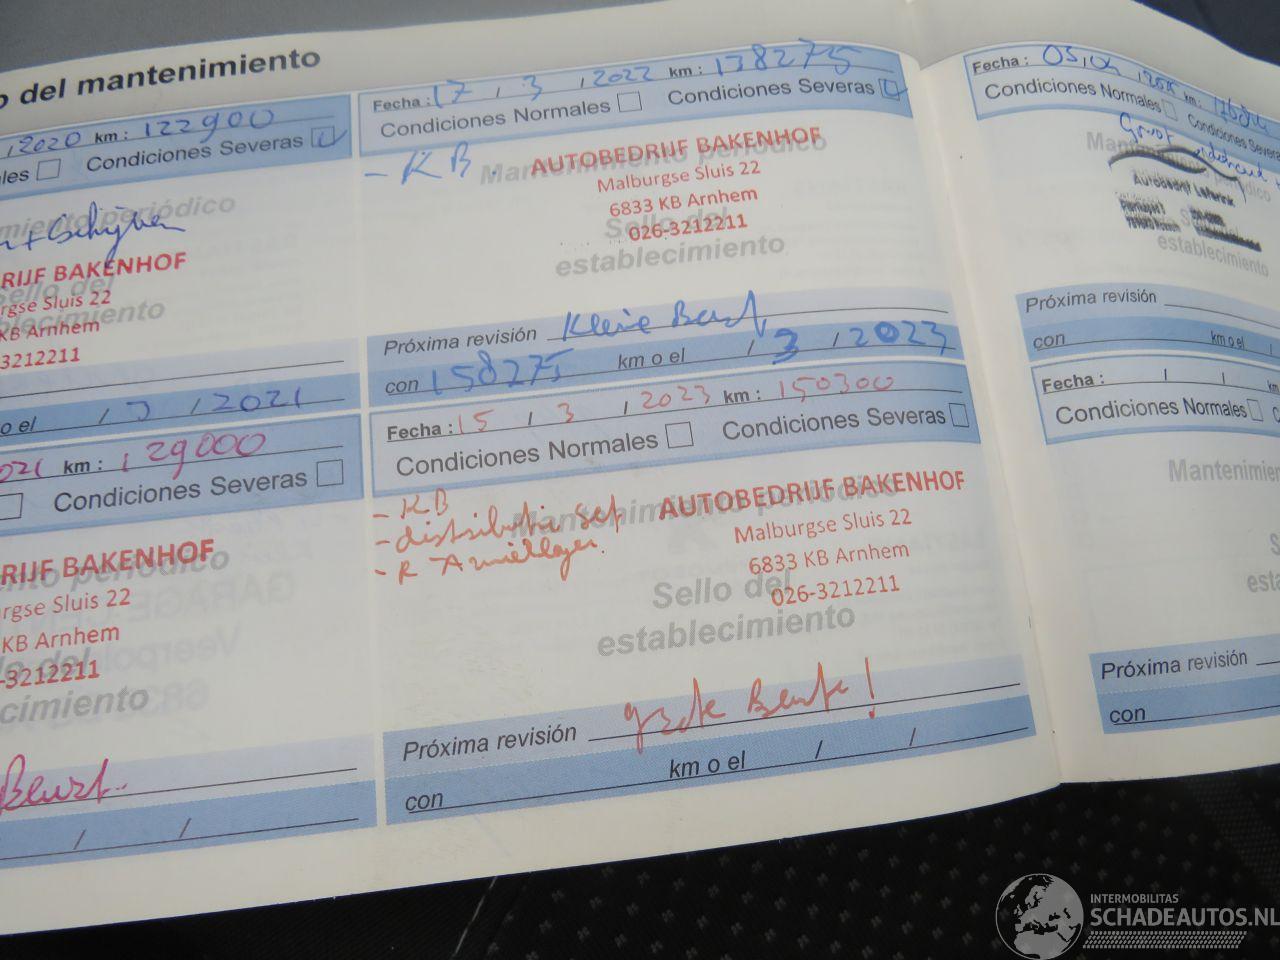 del mantenimiento
2020 km: 122900
Condiciones Severas
miento periódico
RIJF BAKENHOF
rgse Sluis 22
KB Arnhem
3212211
o el / 3 / 2021
km: 129000
Condiciones Severas
nto periódico
RIJF BAKENHOF
urgse Sluis 22
KB Arnhem
-3212211
cimiento
Beurt.
/ /
Fecha: 17 / 3 / 2022 km: 138275
Condiciones Normales Condiciones Severas
- KB
Mantenimiento periódico
AUTOBEDRIJF BAKENHOF
Malburgse Sluis 22
6833 KB Arnhem
026-3212211
Sello del
establecimiento
Próxima revisión Kleine Beurt
con 158275 km o el / 3 / 2023
Fecha: 15 / 3 / 2023 km: 150300
Condiciones Normales Condiciones Severas
- KB
- distributie set
- R
Mantenimiento periódico
AUTOBEDRIJF BAKENHOF
Malburgse Sluis 22
6833 KB Arnhem
026-3212211
Sello del
establecimiento
Próxima revisión grote Beurt!
con km o el / /
Fecha: 05
km:
Condiciones Normales Condiciones Severa
Groot onderhoud
Autobedrijf
establecimiento
Próxima revisión
con km o el /
Fecha: / / km
Condiciones Normales
Mantenimien
Próxima revisión
con
INTERMOBILITAS
SCHADEAUTOS.NL